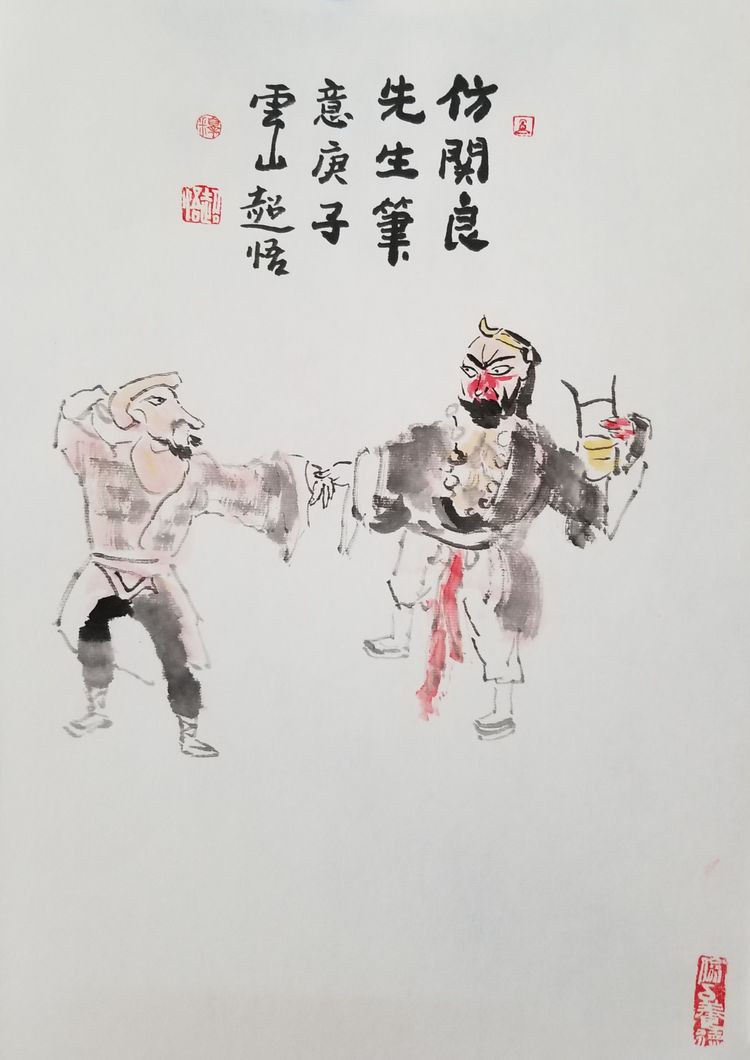 仿關良
先生筆
意庚子
雲山超悟
超悟